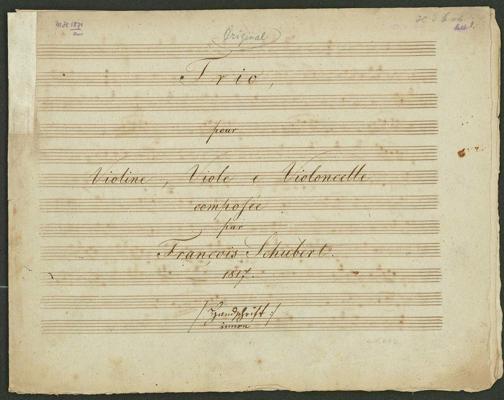 Original
Trio,
pour
Violine, Viole e Violoncelle
composée
par
François Schubert.
1817.
/:Handschrift:/
innen